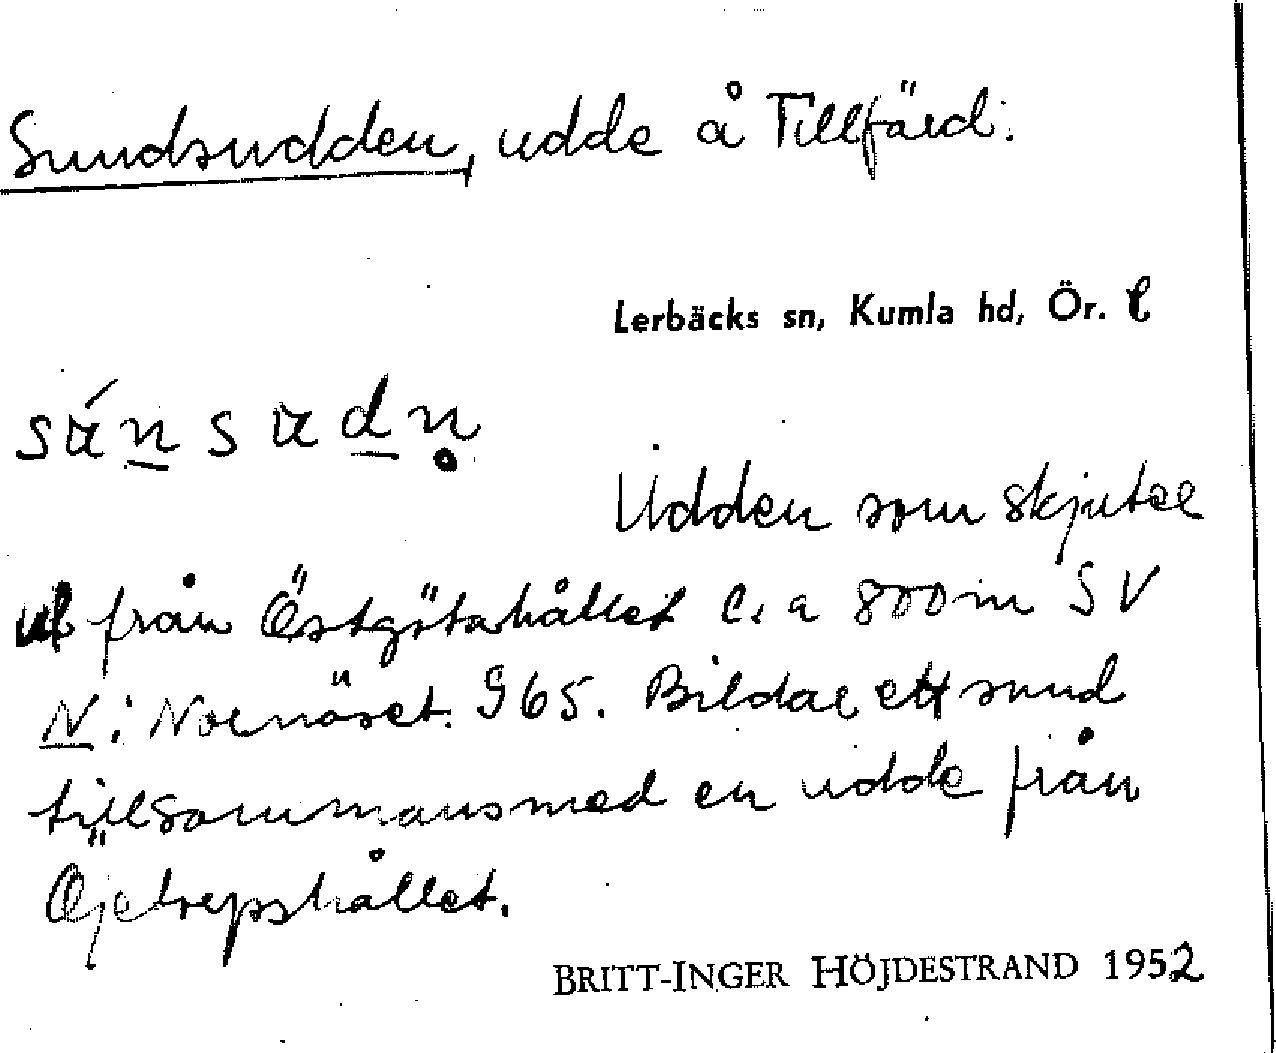 Sundsudden, udde å Tillfärd.
Lerbäcks sn, Kumla hd, Ör. l
Udden som skjuter
ut från Östgötahållet c. a 800 m SV
N: Nornäset. 965. Bildar ett sund
tillsammans med en udde från
hållet.
BRITT-INGER HÖJDESTRAND 1952